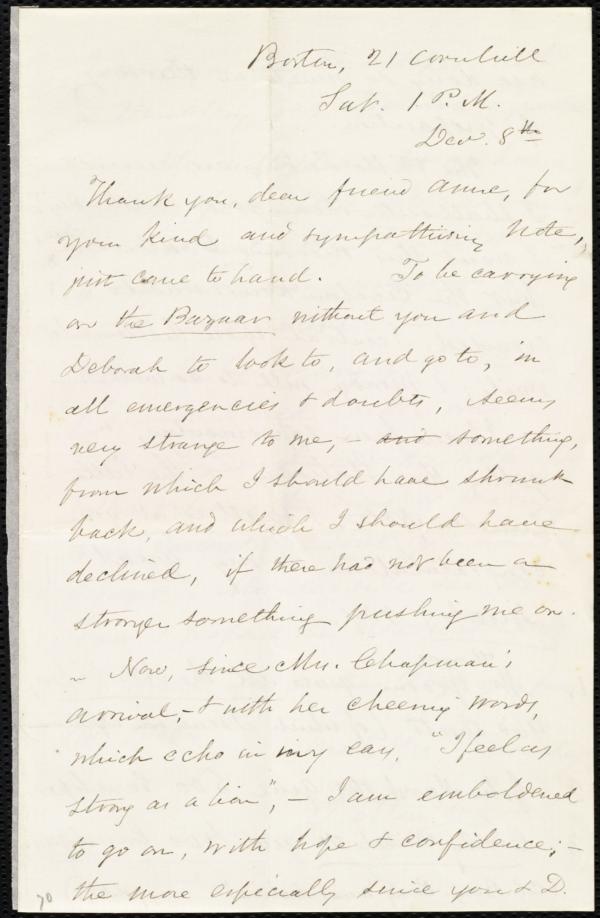 Boston, 21 Cornhill
Sat. 1 P.M.
Dec. 8th
Thank you, dear friend Anne, for
your kind and sympathising note,
just come to hand. To be carrying
on the Bazaar without you and
Deborah to look to, and go to, in
all emergencies & doubts, seems
very strange to me, - and something,
from which I should have shrunk
back, and which I should have
declined, if there had not been a
stronger something pushing me on.
- Now, since Mrs. Chapman's
arrival, - & with her cheering words,
which echo in my ear, "I feel as
strong as a lion", - I am emboldened
to go on, with hope & confidence; -
the more especially since you & D.
70